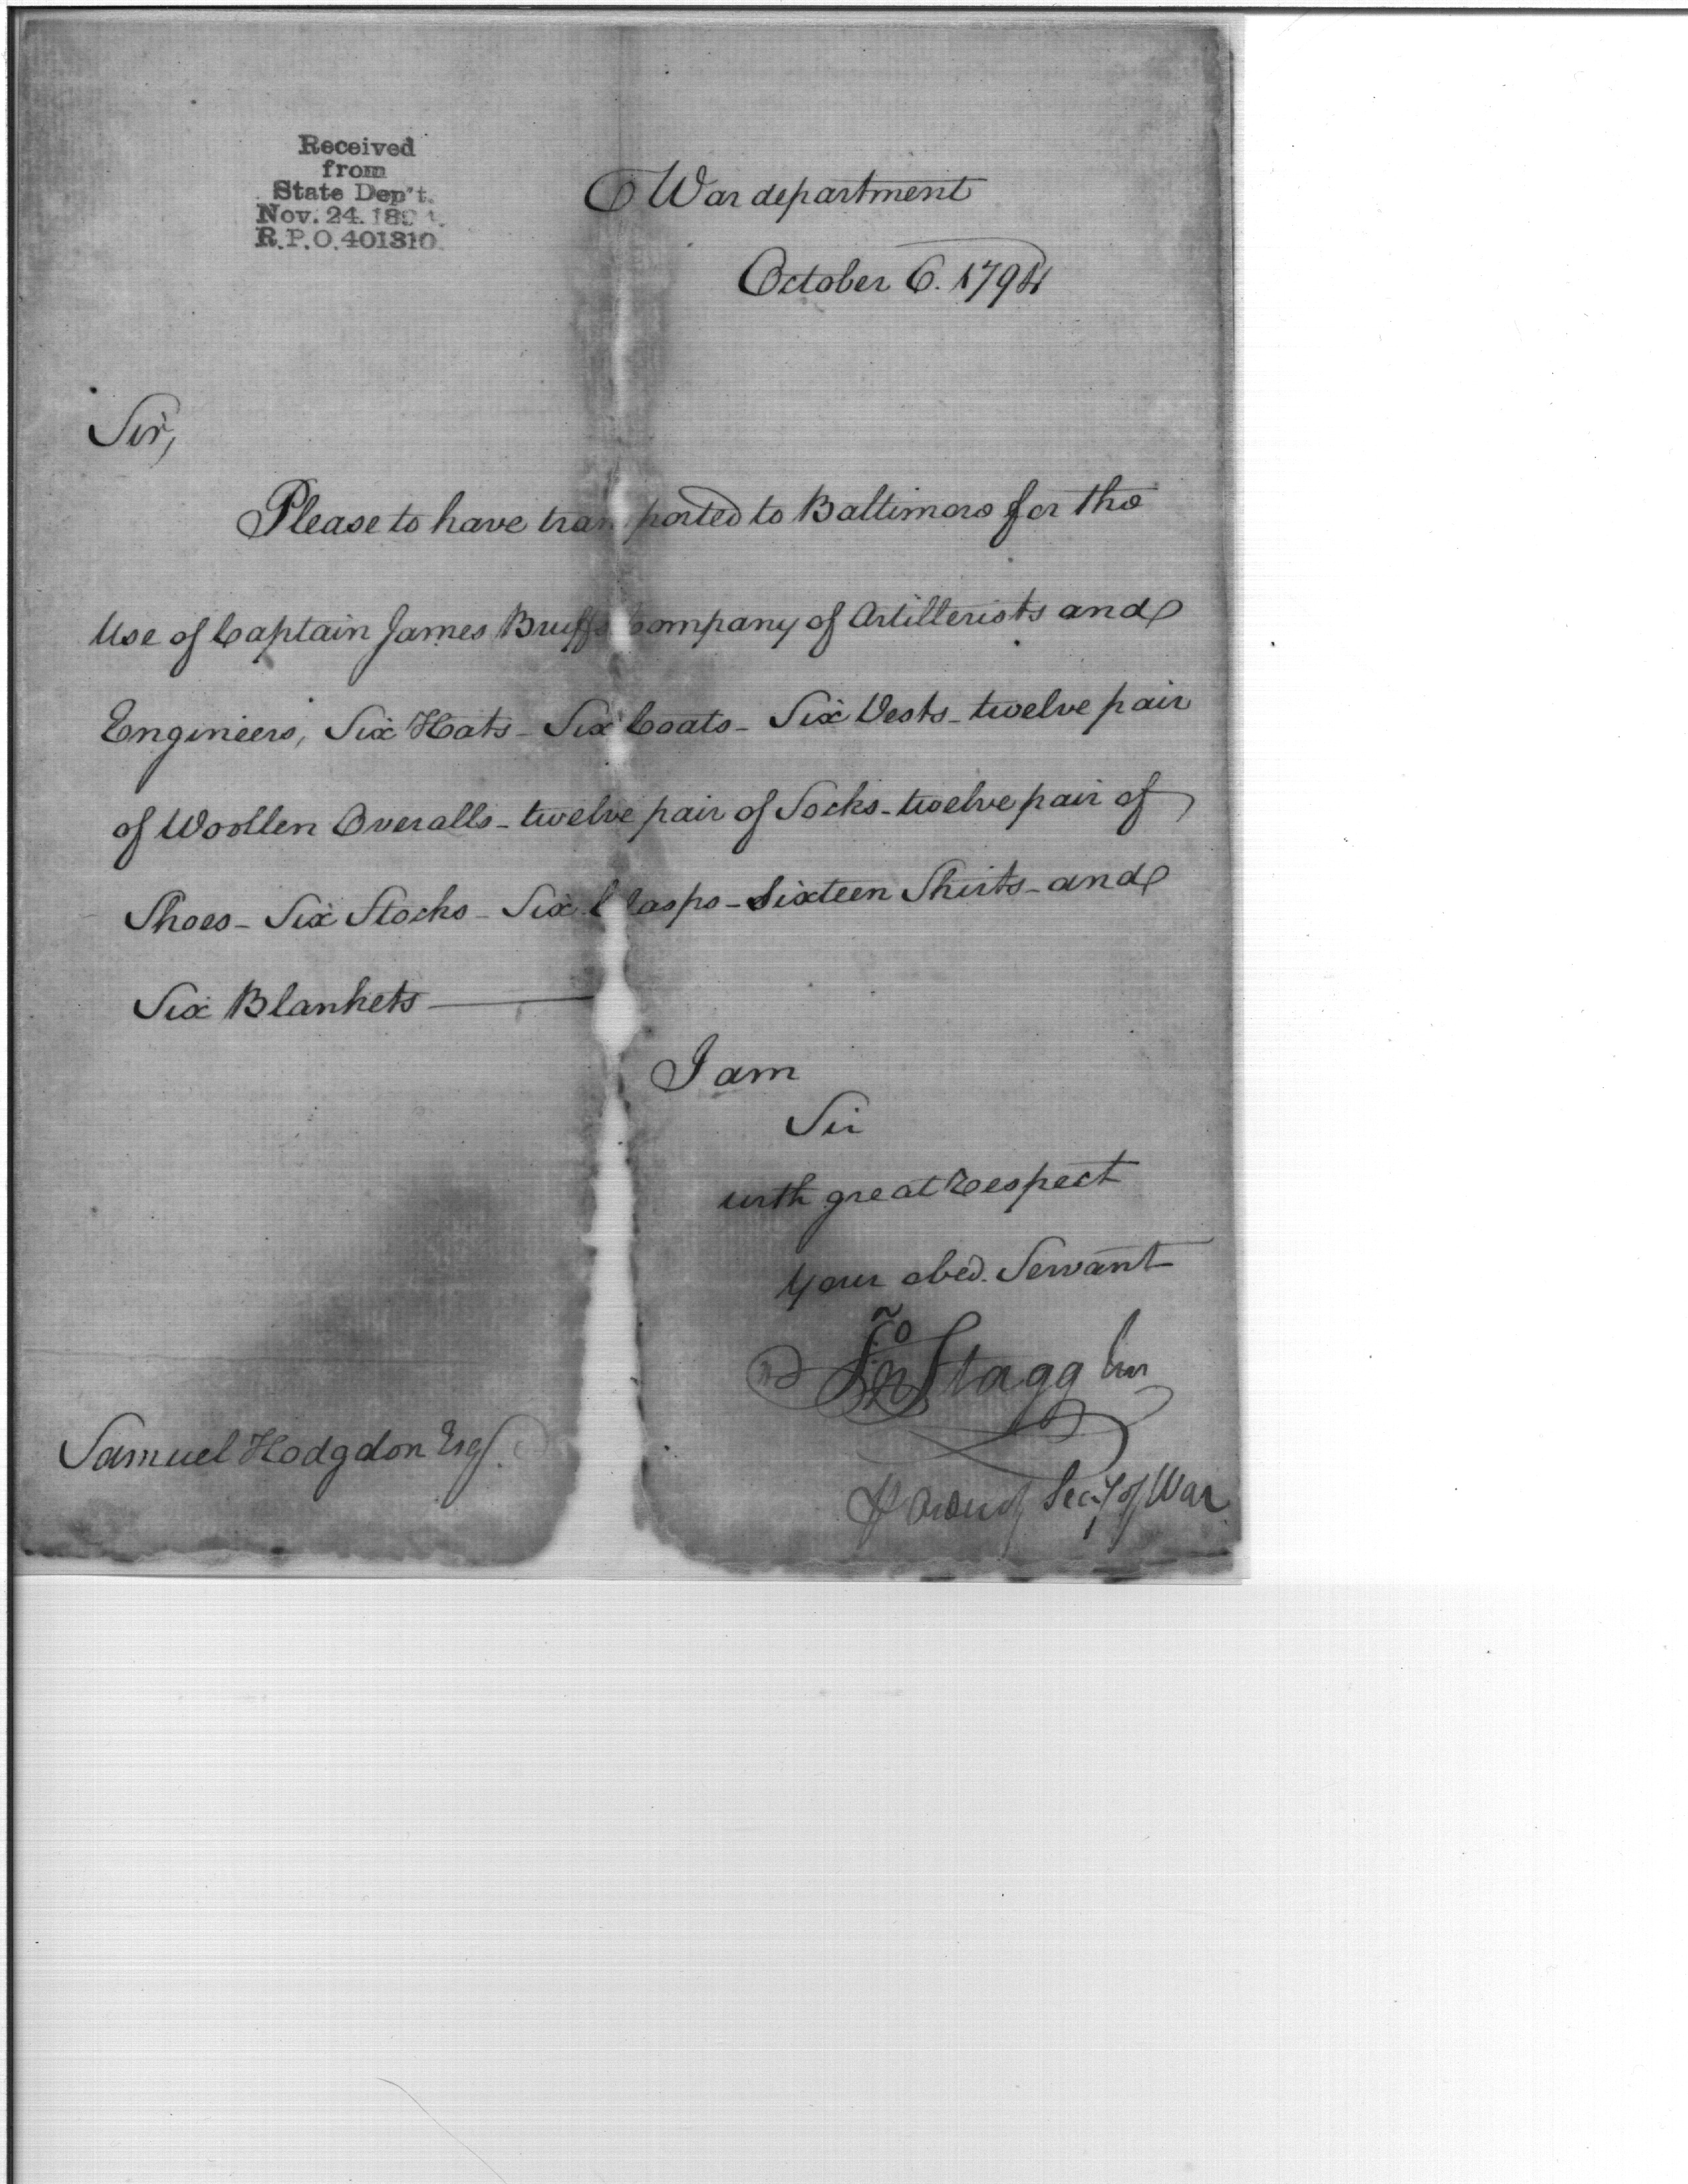 Received
from
State Dep't.
Nov. 24. 189
R.P.O. 401310.
War department
October 6. 1794
Sir,
Please to have tran ported to Baltimore for the
Use of Captain James Bruffs Company of Artillerists and
Engineers, Six Hats - Six Coats - Six Vests - twelve pair
of Woollen Overalls - twelve pair of Socks - twelve pair of
Shoes - Six Stocks - Six Clasps - Sixteen Shirts - and
Six Blankets
I am
Sir
with great respect
Your obed. Servant
Jno Stagg Junr
Samuel Hodgdon Esqr.
Secy of War